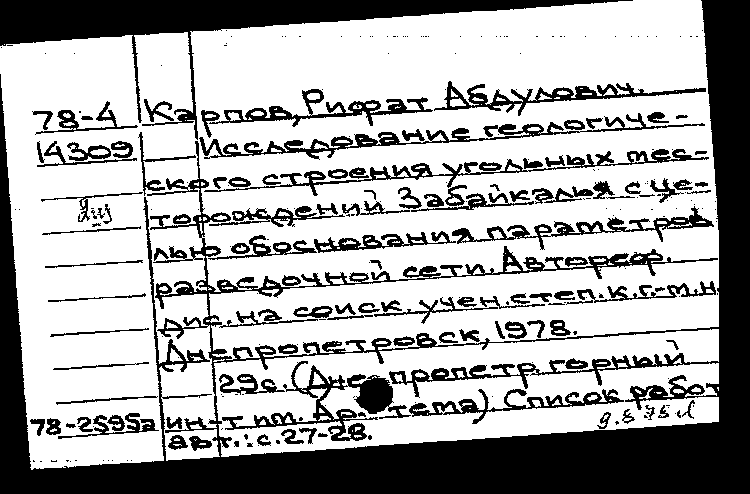 78-4 Карпов, Рифат Абдулович.
14309 Исследование геологиче-
ского строения угольных мес-
торождений Забайкалья с це-
лью обоснования параметров
разведочной сети. Автореф.
дис. на соиск. учен. степ. к.г.-м.н.
Днепропетровск, 1978.
29с. (Днепропетр. горный
78-2595а ин-т им. Артема). Список работ
авт.: с. 27-28.